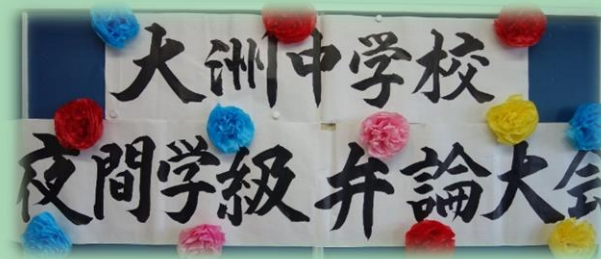 大洲中学校
夜間学級 弁論大会